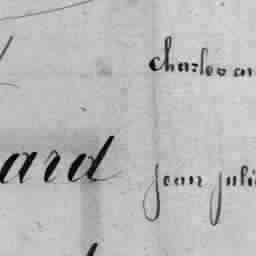 charles
ard jean juli